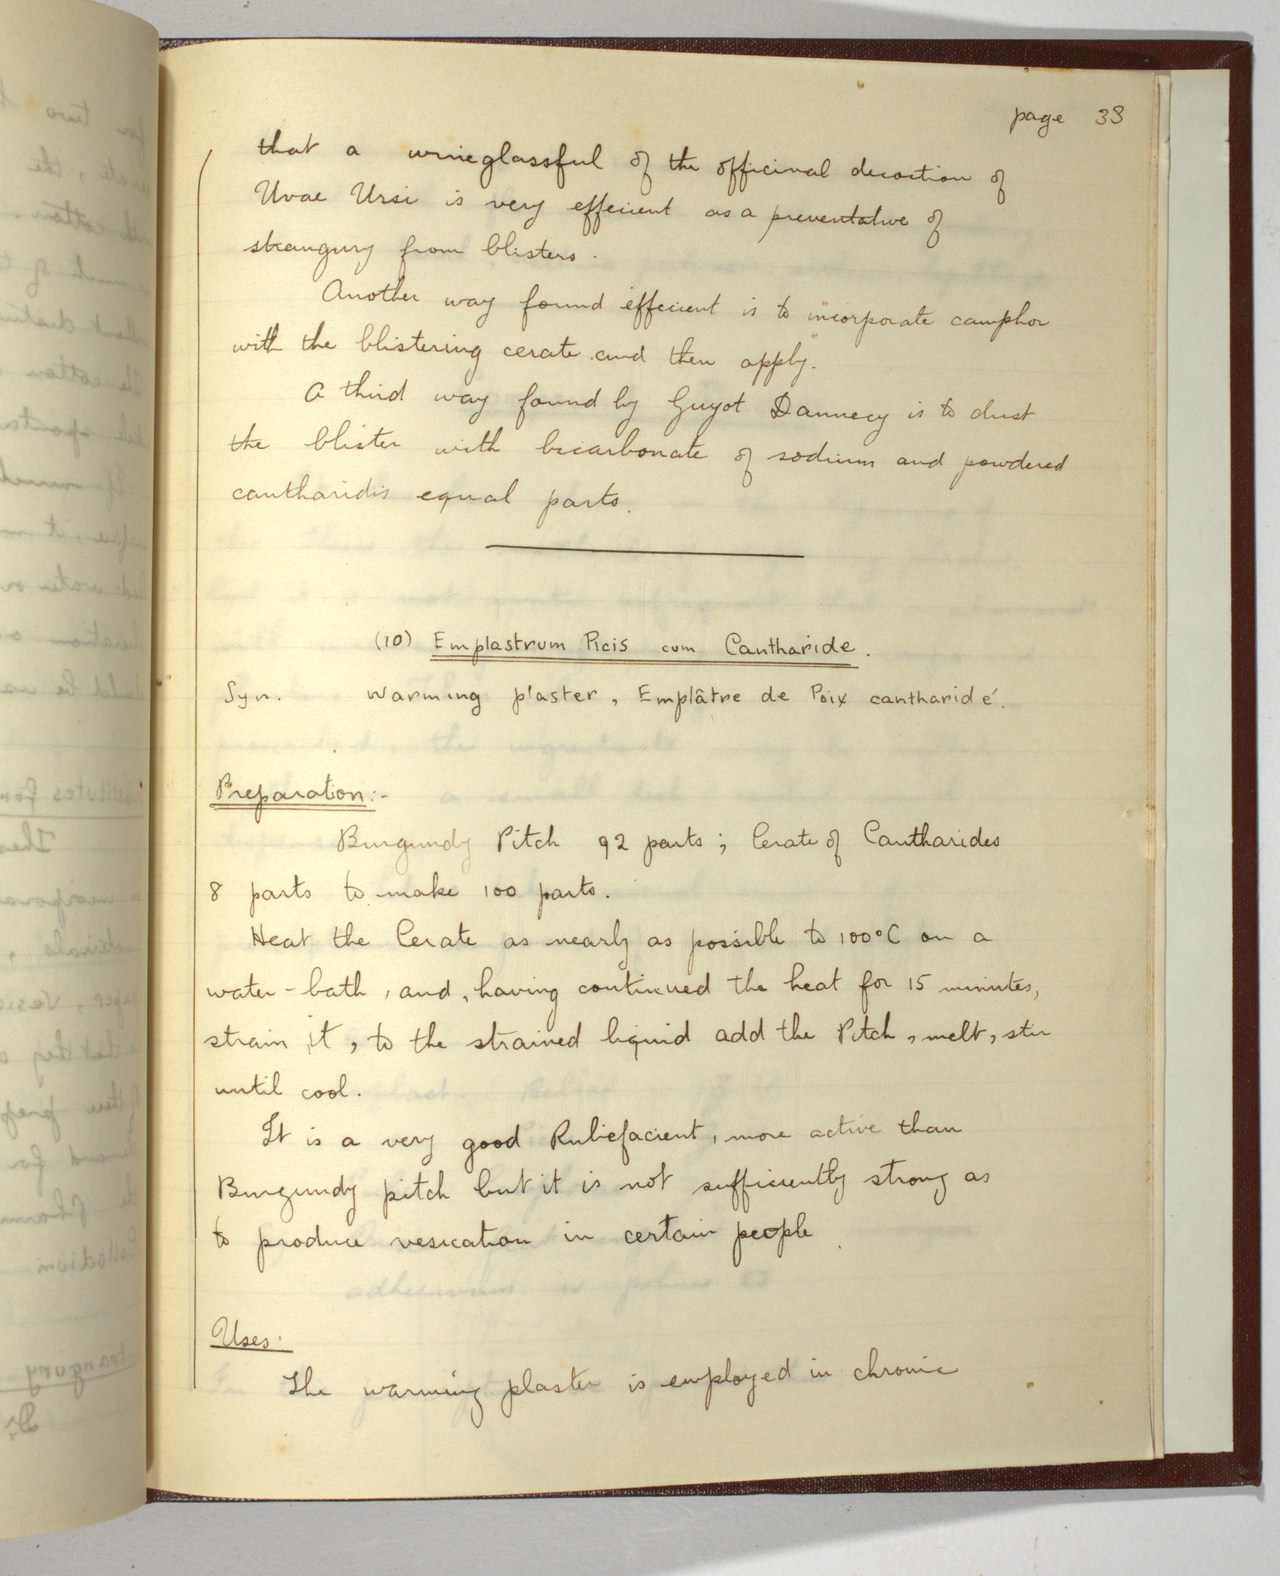 page 33
that a wineglassful of the officinal decoction of
Uvae Ursi is very effecient as a preventative of
strangury from blisters.
Another way found effecient is to incorporate camphor
with the blistering cerate and then apply.
A third way found by Guyot Dannecy is to dust
the blister with bicarbonate of sodium and powdered
cantharidis equal parts.
(10) Emplastrum Picis cum Cantharide.
Syn. Warming plaster, Emplâtre de Poix cantharidé.
Preparation:-
Burgundy Pitch 92 parts; Cerate of Cantharides
8 parts to make 100 parts.
Heat the Cerate as nearly as possible to 100°C on a
water-bath, and, having continued the heat for 15 minutes,
strain it, to the strained liquid add the Pitch, melt, stir
until cool.
It is a very good Rubefacient, more active than
Burgundy pitch but it is not sufficiently strong as
to produce vesication in certain people.
Uses:
The warming plaster is employed in chronic